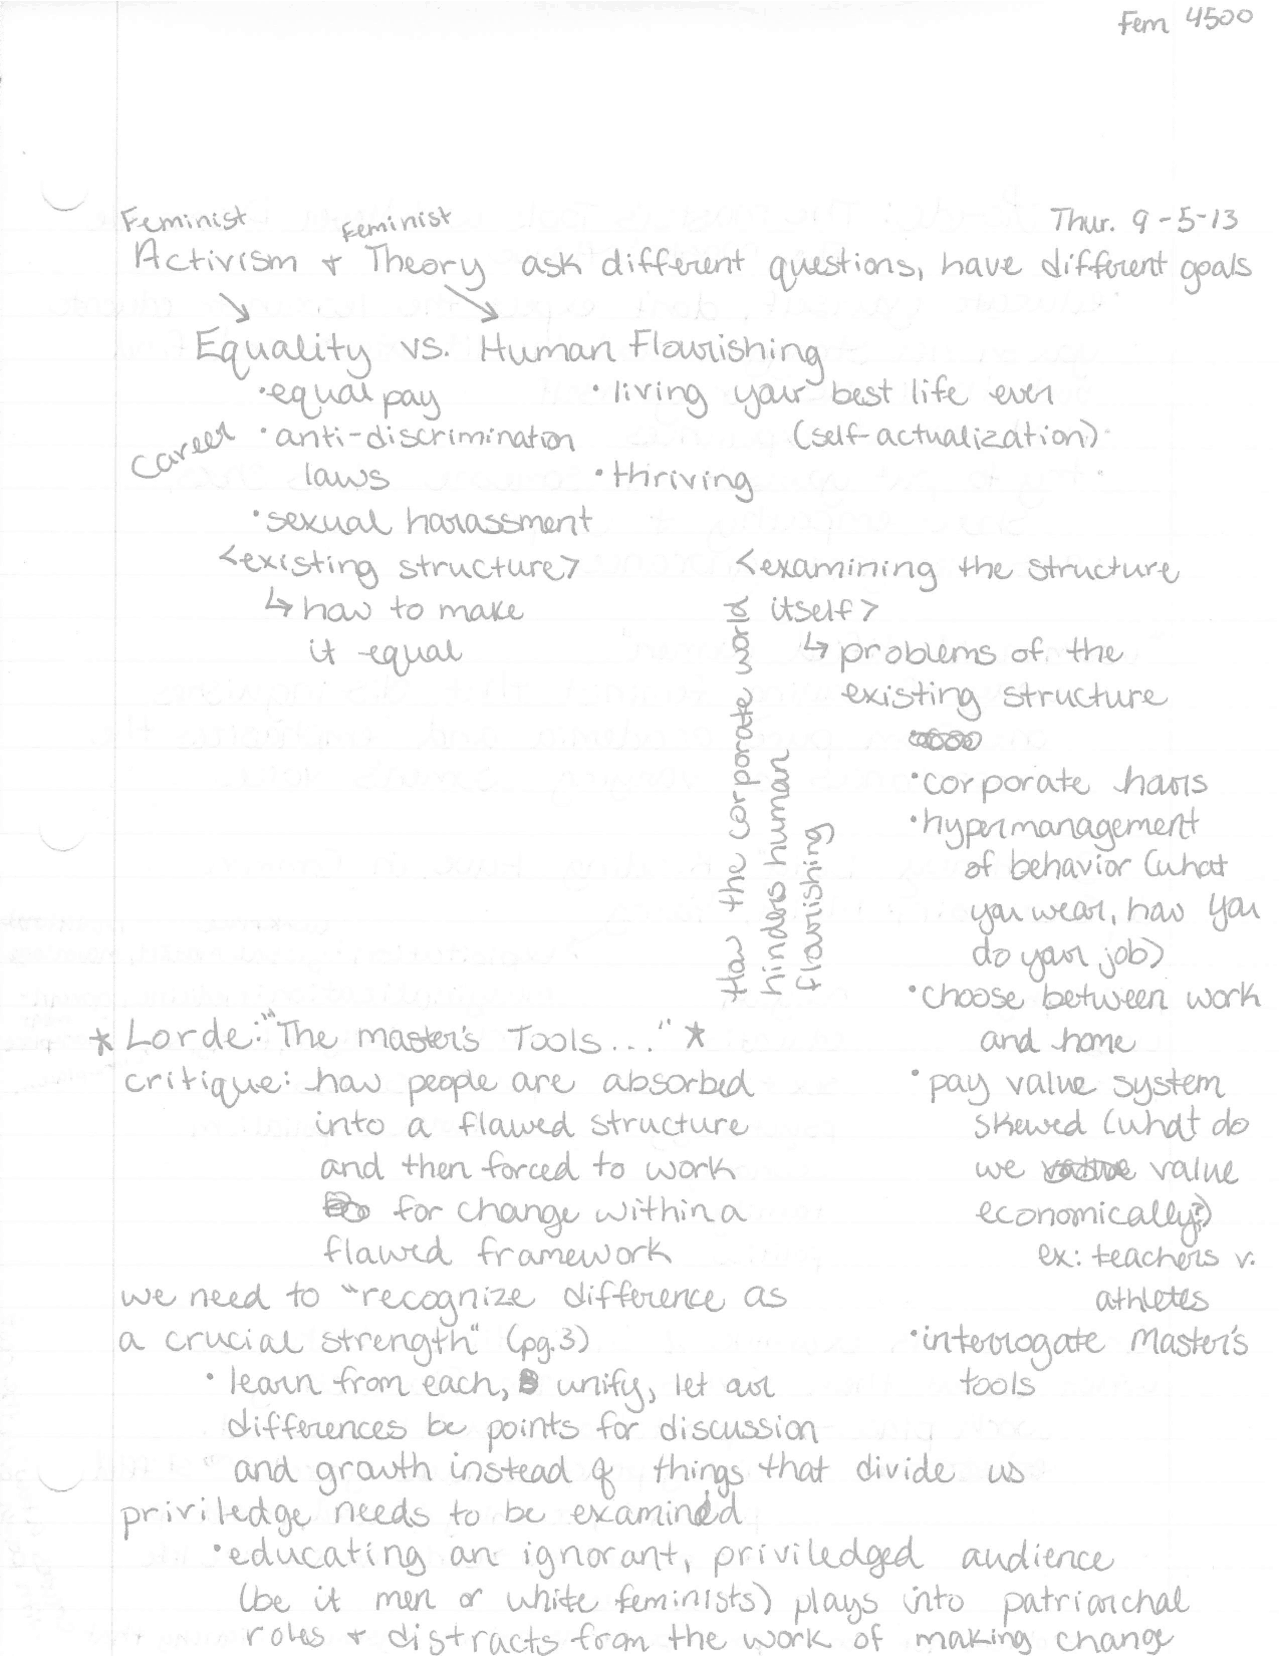 Fem 4500
Thur. 9-5-13
Feminist Feminist
Activism + Theory ask different questions, have different goals
Equality vs. Human Flourishing
•equal pay
Career
•anti-discrimination
laws
•sexual harassment
<existing structure>
↳ how to make
it equal
•living your best life ever
(self-actualization)
•thriving
<examining the structure
itself>
↳ problems of the
existing structure
How the corporate world
hinders human
flourishing
•corporate hours
•hypermanagement
of behavior (what
you wear, how you
do your job)
•choose between work
and home
•pay value system
skewed (what do
we value
economically?)
ex: teachers v.
athletes
•interrogate Master's
tools
* Lorde: "The master's Tools..." *
critique: how people are absorbed
into a flawed structure
and then forced to work
for change within a
flawed framework
we need to "recognize difference as
a crucial strength" (pg.3)
• learn from each, unify, let our
differences be points for discussion
and growth instead of things that divide us
priviledge needs to be examined
•educating an ignorant, priviledged audience
(be it men or white feminists) plays into patriarchal
roles + distracts from the work of making change